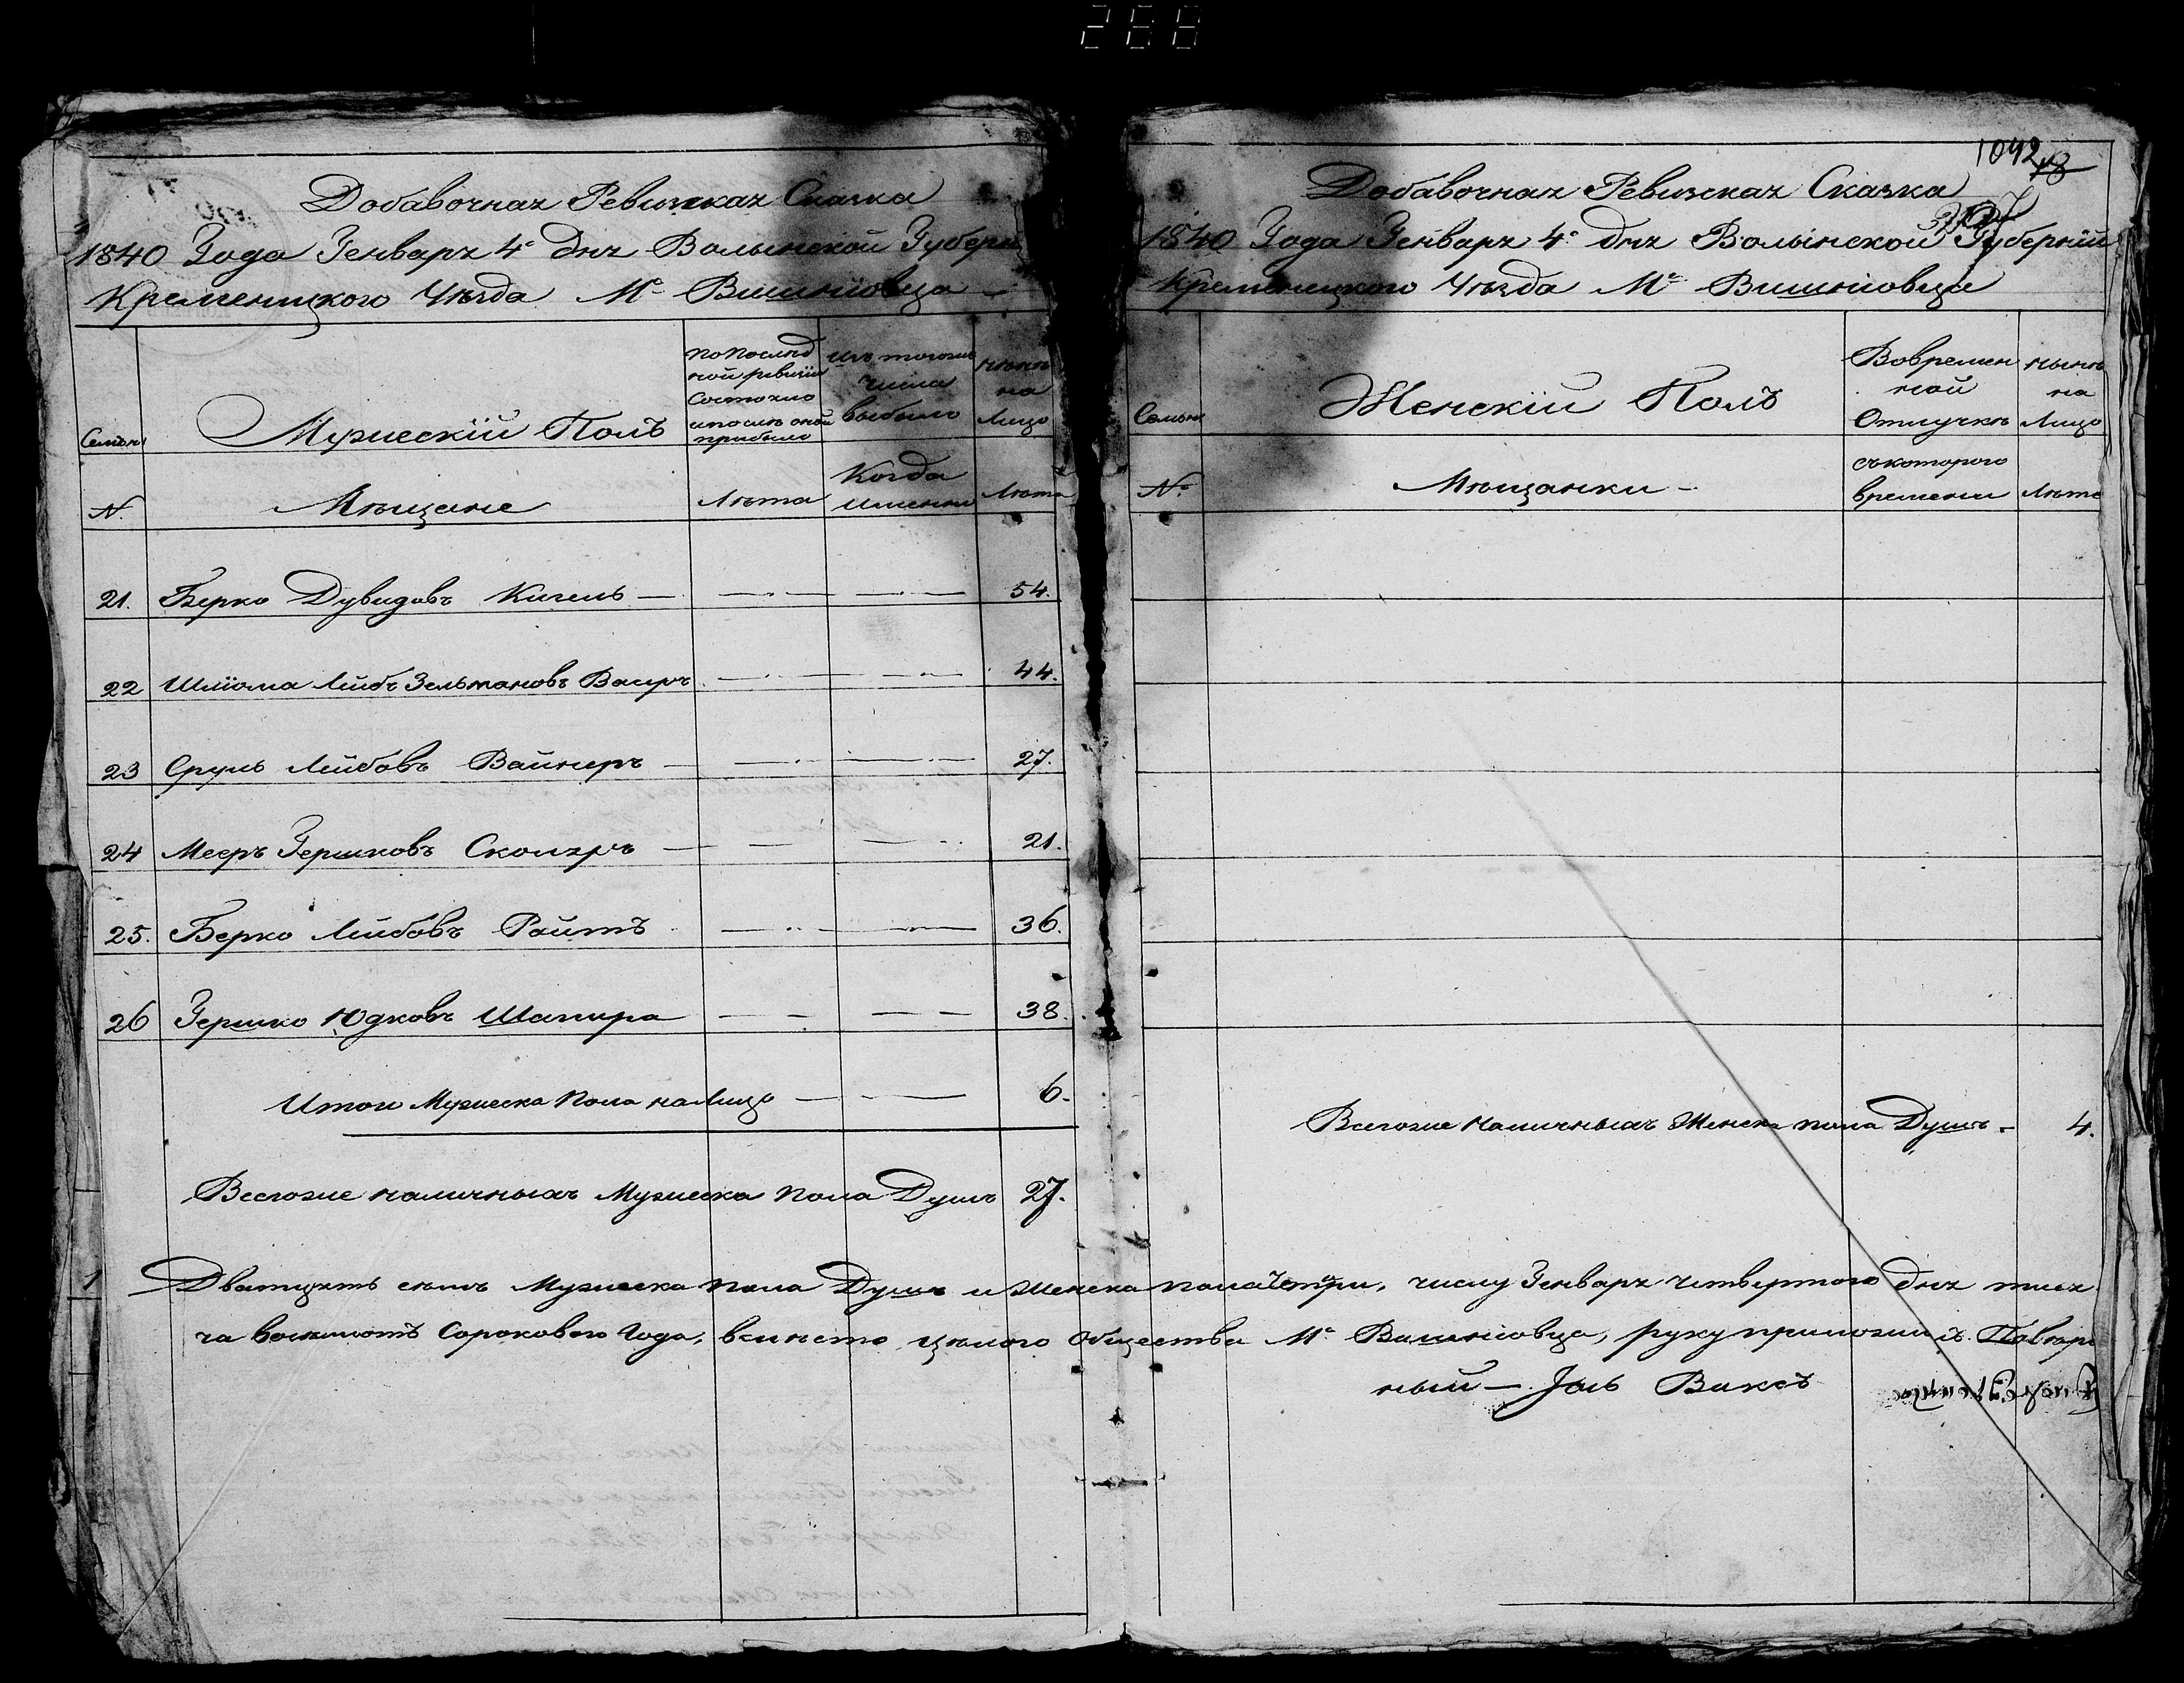 268
Добавочная Ревизская Сказка
1840 Года Генваря 4º дня Волынской Губерн
Кременецкого Уѣзда Мº Вишніовца
Семьи
Мужескій Полъ
По послѣд
ной ревизіи
Состояло
и послѣ оной
прибыло
Изъ тогожъ
числа
выбыло
нынѣ
на
Лицо
N.
Мѣщане
Лѣта
Когда
именно
Лѣта
21. Берко Дувидовъ Кигель — 54.
22 Шліома Лейбъ Зельмановъ 44.
23 Сруль Лейбовъ Вайнеръ 27.
24 Мееръ Гершковъ Сколяръ 21.
25. Берко Лейбовъ Райтъ 36.
26 Гершко Юдковъ Шапира 38.
Итого Мужеска Пола на Лицо — 6.
Всегоже наличныхъ Мужеска пола Душъ 27.
1042
Добавочная Ревизская Сказка
1840 Года Генваря 4º дня Волынской Губерніи
Кременецкого Уѣзда Мº Вишніовца
Семьи
Женскій Полъ
Вовремен
ной
Отлучкѣ
нынѣ
на
Лицо
Nº
Мѣщанки —
съ которого
времени
Лѣта
Всегоже наличныхъ Женска пола Душъ — 4.
Двадцять семь Мужеска пола Душъ и Женска пола Четыри, числу Генваря четвертого дня тися
ча восьмсотъ Сорокового Года, вмѣсто цѣлого Общества Мº Вишніовца, руку приложилъ. Повѣре
ный — Іоль Ваксъ